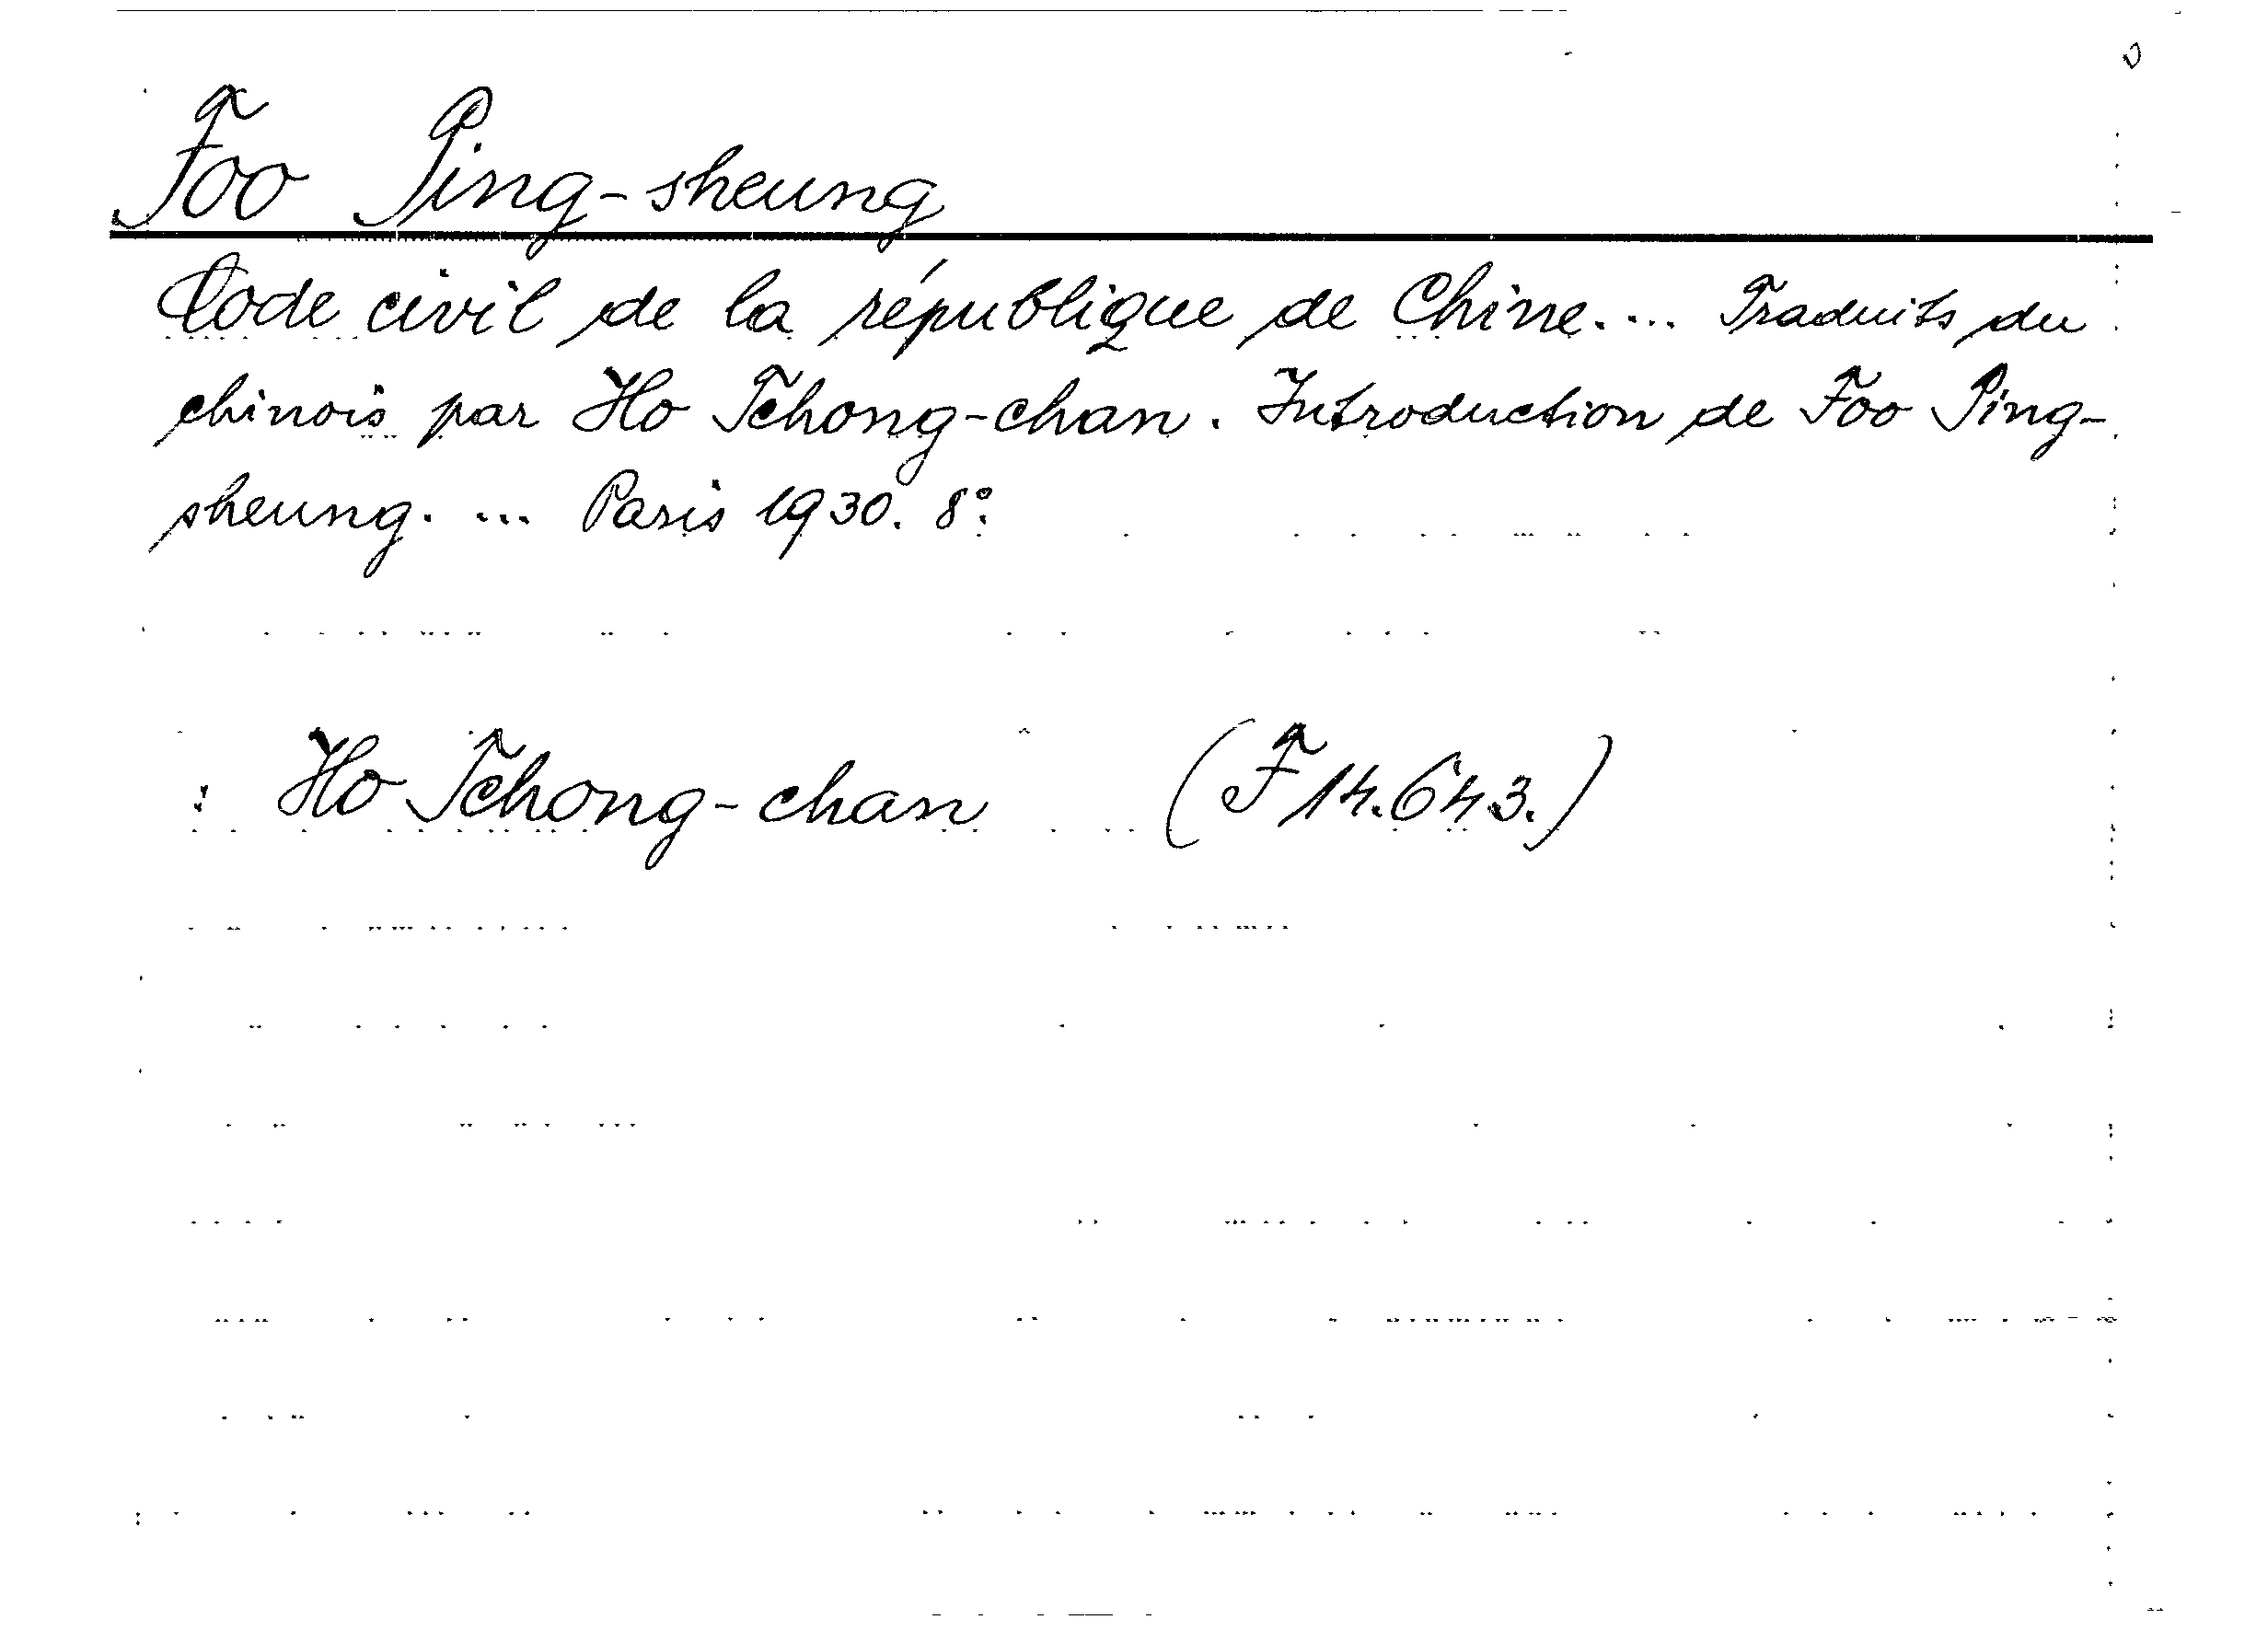 Foo Ping-sheung
Code civil de la république de Chine. ... Traduits du
chinois par Ho Tchong-chan. Introduction de Foo Ping-
sheung. ... Paris 1930. 8:o
: Ho Tchong-chan (F 14.643.)